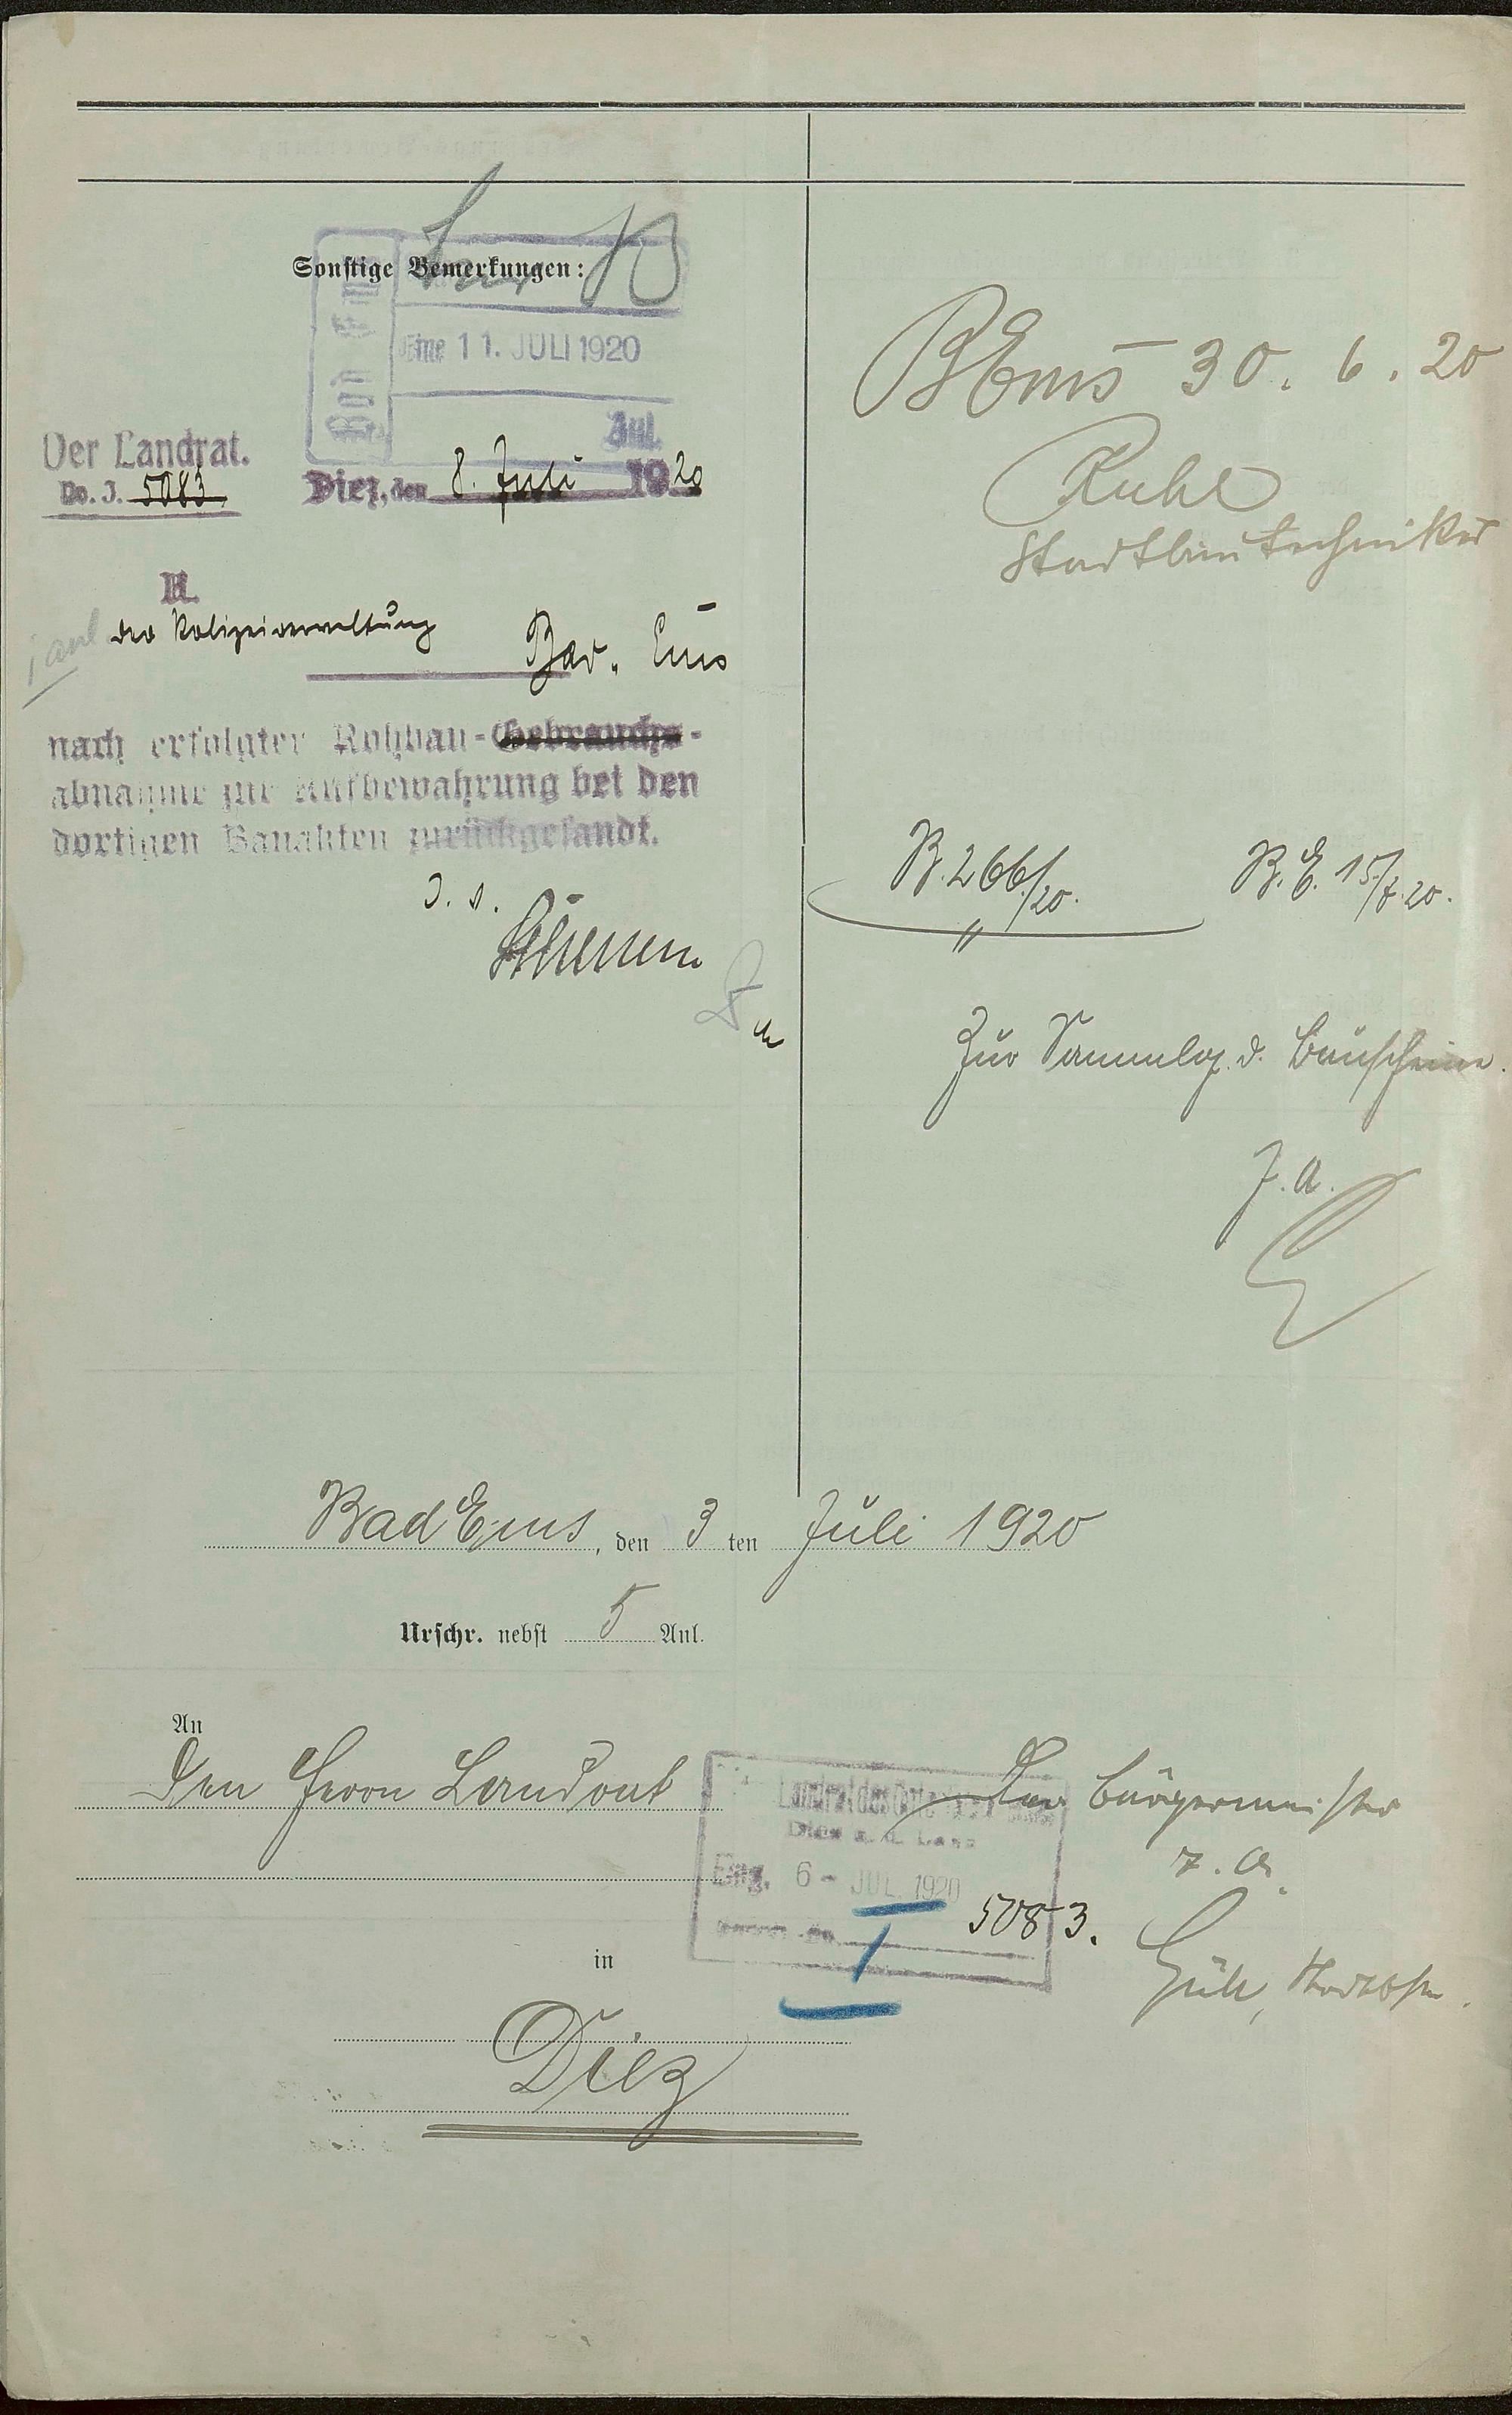 Sonstige Bemerkungen:
Bad Ems
11. JULI 1920
Anl.
Der Landrat.
No. I. 5083.
Diez, den 8. Juli 1920
II.
der Polizeiverwaltung
Bad. Ems
nach erfolgter Rohbau-Gebrauchs-
abnahme zur Aufbewahrung bei den
dortigen Bauakten zurückgesandt.
BEms 30. 6. 20
Ruhl
Stadtbautechniker
B. 266/20. B.E. 15/7.20.
Zur Sammlg. d. Bauscheine.
J. A.
Bad Ems, den 3 ten Juli 1920
Urschr. nebst 5 Anl.
An
Den Herrn Landrat
Der Bürgermeister
Landrat des
Diez a. d. Lahn
Eing. 6 - JUL. 1920
5083.
I
in
Diez